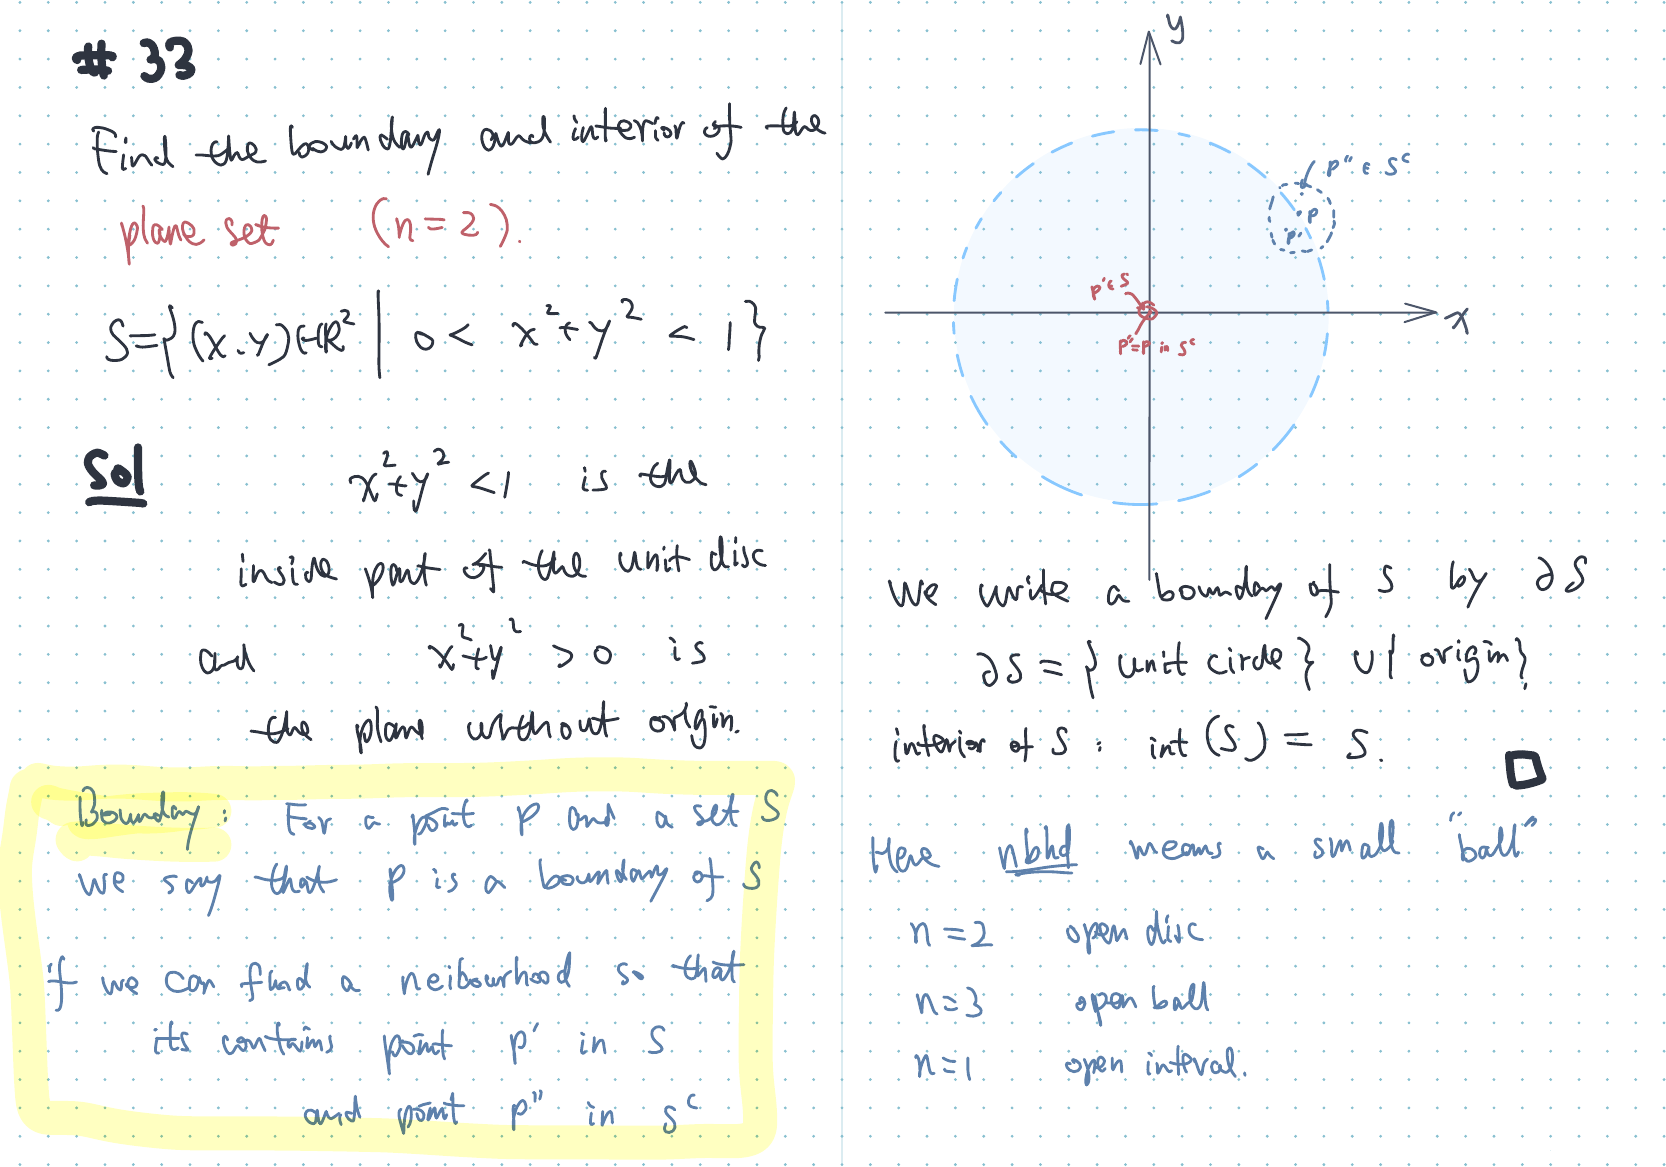 # 33
Find the boundary and interior of the
plane set (n=2).
S={(x.y)∈ℝ² | 0 < x²+y² < 1}
Sol x²+y² <1 is the
inside part of the unit disc
and x²+y² >0 is
the plane without origin.
Boundary: For a point p and a set S
we say that p is a boundary of S
if we can find a neibourhood so that
its contains point p' in S
and point p'' in Sᶜ
y
p'' ∈ Sᶜ
p
p'
p'∈ S
x
p''=p in Sᶜ
We write a boundary of S by ∂S
∂S = { unit circle } ∪ { origin }
interior of S : int (S) = S.
Here nbhd means a small "ball"
n=2 open disc
n=3 open ball
n=1 open interval.